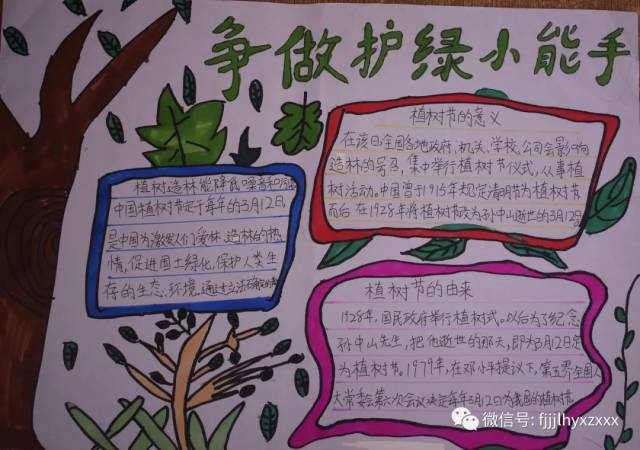 争做护绿小能手
植树节的意义
在该日全国各地政府、机关、学校、公司会影响
造林的号召，集中举行植树节仪式，从事植
树活动。中国曾于1915年规定清明节为植树节
而后在1928年将植树节改为孙中山逝世的3月12日
植树造林能降低噪音和污染
中国植树节定于每年的3月12日，
是中国为激发人们爱林、造林的热
情，促进国土绿化，保护人类生
存的生态环境，通过立法确定的
植树节的由来
1928年，国民政府举行植树式。以后为了纪念
孙中山先生，把他逝世的那天，即为3月12日定
为植树节。1979年，在邓小平提议下，第五界全国人
大常委会第六次会议决定每年3月12日为我国的植树节
微信号: fjjjlhyxzxxx